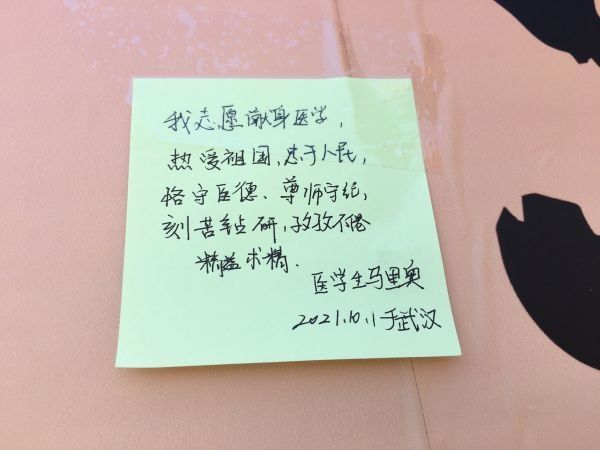 我志愿献身医学，
热爱祖国，忠于人民，
恪守医德、尊师守纪，
刻苦钻研，孜孜不倦
精益求精.
医学生马里奥
2021.10.1于武汉